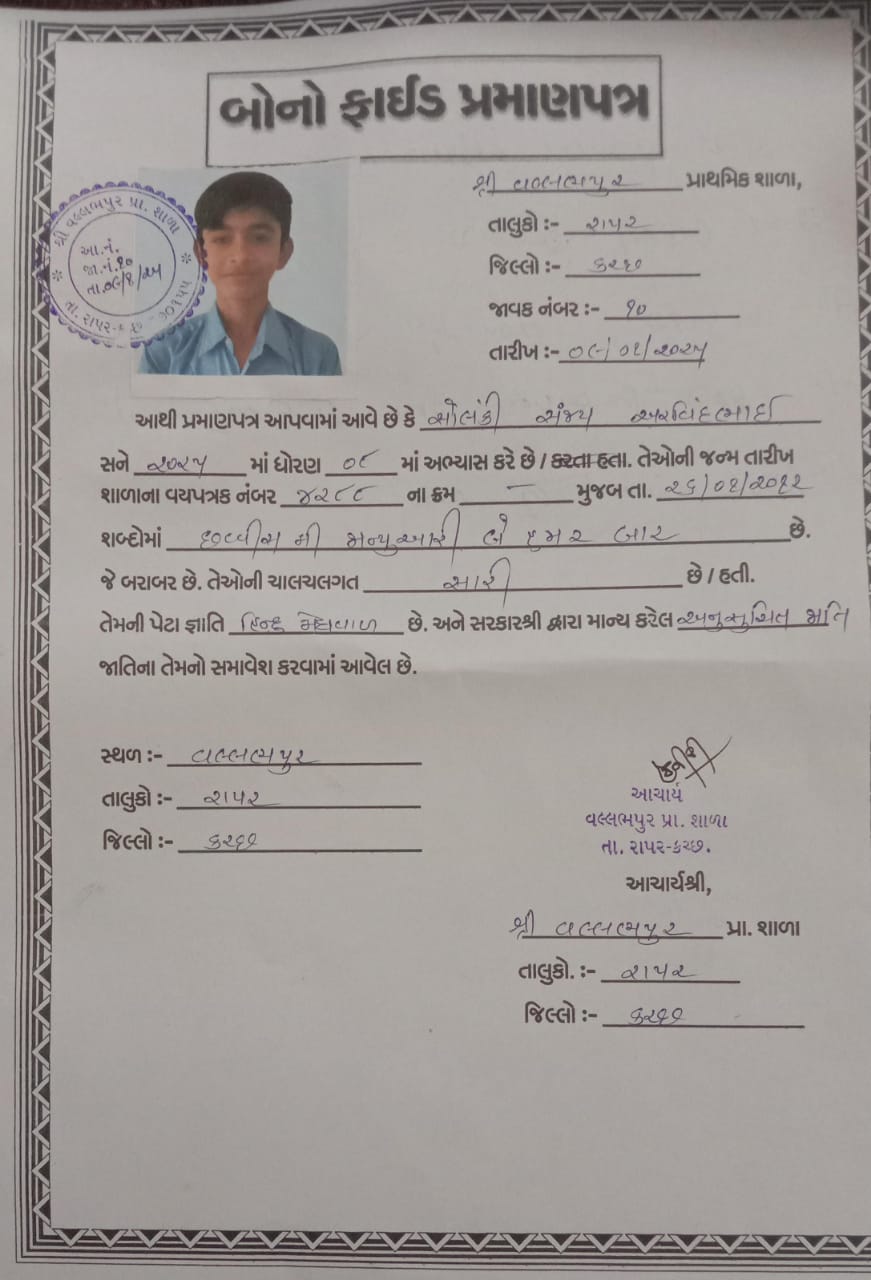 બોનો ફાઈડ પ્રમાણપત્ર
શ્રી વલ્લભપુર પ્રાથમિક શાળા,
તાલુકો :- રાપર
જિલ્લો :- કચ્છ
જાવક નંબર :- ૧૦
તારીખ :- ૦૯/૦૧/૨૦૨૫
શ્રી વલ્લભપુર પ્રા. શાળા
આ.નં.
જા.નં.૧૦
તા.૦૯/૧/૨૫
તા. રાપર-કચ્છ
આથી પ્રમાણપત્ર આપવામાં આવે છે કે સોલંકી સંજય અરવિંદભાઈ
સને ૨૦૨૫ માં ધોરણ ૦૮ માં અભ્યાસ કરે છે / કરતા હતા. તેઓની જન્મ તારીખ
શાળાના વયપત્રક નંબર ૪૨૮૮ ના ક્રમ - મુજબ તા. ૨૬/૦૧/૨૦૧૨
શબ્દોમાં છવ્વીસ મી જાન્યુઆરી બે હજાર બાર છે.
જે બરાબર છે. તેઓની ચાલચલગત સારી છે / હતી.
તેમની પેટા જ્ઞાતિ હિન્દુ મેઘવાળ છે. અને સરકારશ્રી દ્વારા માન્ય કરેલ અનુસુચિત જાતિ
જાતિના તેમનો સમાવેશ કરવામાં આવેલ છે.
સ્થળ :- વલ્લભપુર
તાલુકો :- રાપર
જિલ્લો :- કચ્છ
આચાર્ય
વલ્લભપુર પ્રા. શાળા
તા. રાપર-કચ્છ.
આચાર્યશ્રી,
શ્રી વલ્લભપુર પ્રા. શાળા
તાલુકો. :- રાપર
જિલ્લો :- કચ્છ